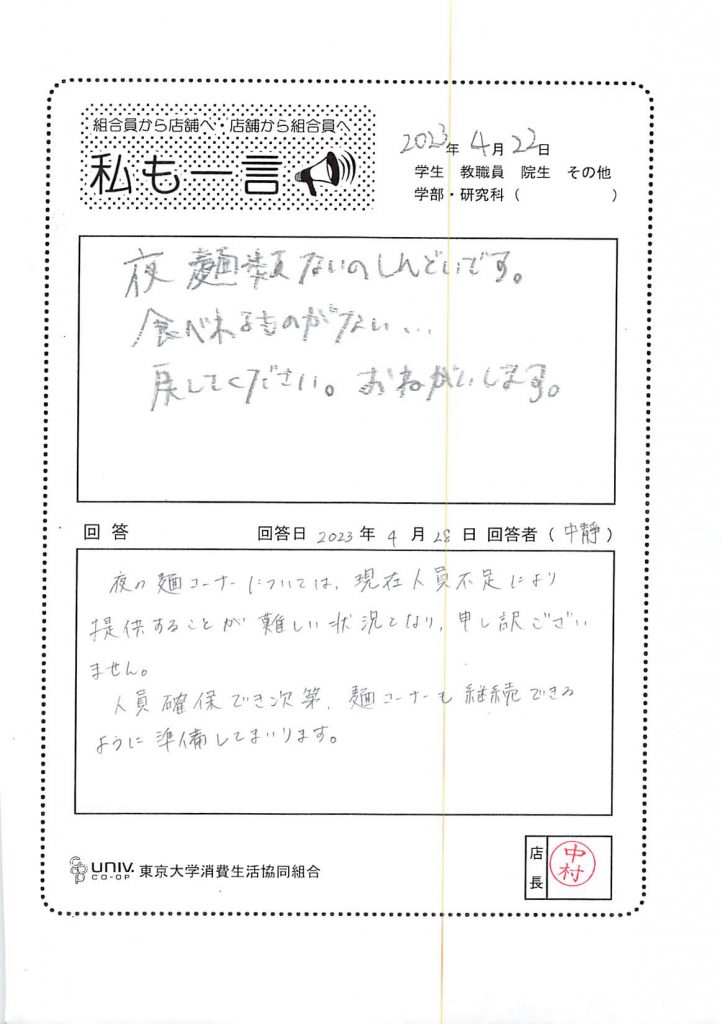 組合員から店舗へ・店舗から組合員へ
私も一言
2023年4月22日
学生 教職員 院生 その他
学部・研究科( )
夜 麺類ないのしんどいです。
食べれるものがない...
戻してください。おねがいします。
回答 回答日 2023年4月28日 回答者(中靜)
夜の麺コーナーについては、現在人員不足により
提供することが難しい状況となり、申し訳ござい
ません。
人員確保でき次第、麺コーナーも継続できる
ように準備してまいります。
UNIV. CO-OP 東京大学消費生活協同組合
店長 中村